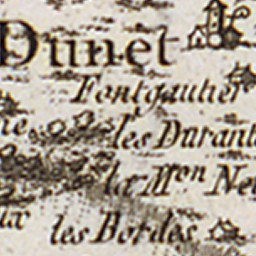 Dunet
Fontgautier
les Durant
la M.on Ne
ux les Bordes